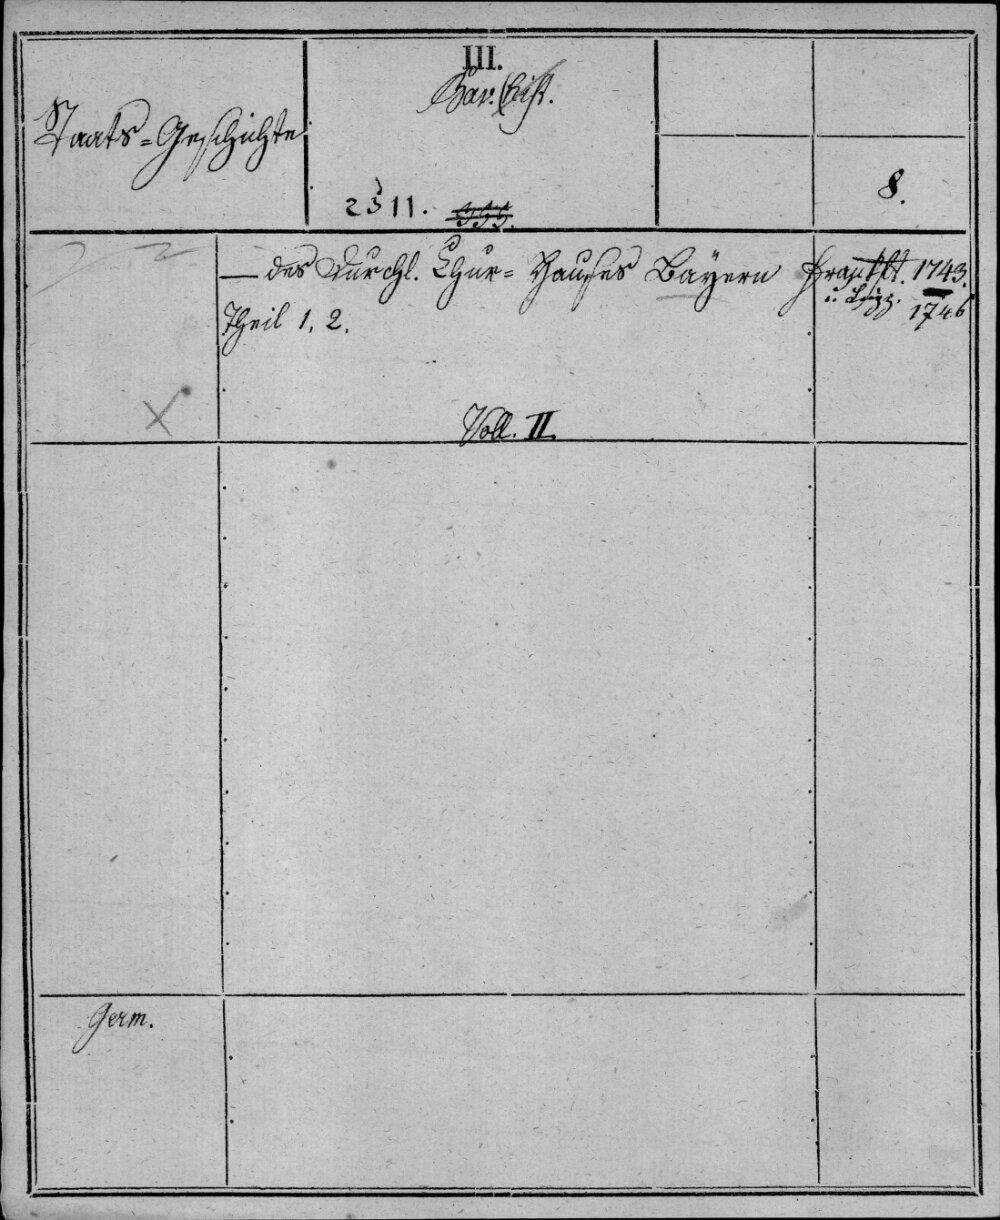 III.
Bav.
Staats=Geschichte
8.
2311.
— des Durchl. Chur=Hauses Bayern Frankft. 1743.
u. Leipz. 1746
Theil 1, 2.
Voll. II.
Germ.